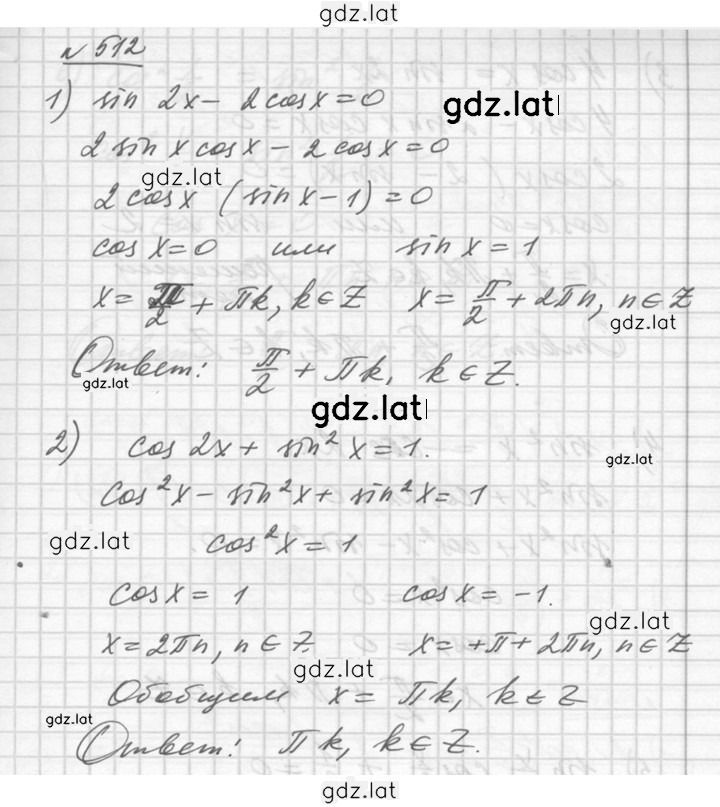 gdz.lat
n 512
1) sin 2x - 2cosx = 0
gdz.lat
2 sin x cos x - 2 cos x = 0
gdz.lat
2 cos x (sin x - 1) = 0
cos x = 0 или sin x = 1
x = π/2 + πk, k ∈ Z x = π/2 + 2πn, n ∈ Z
gdz.lat
Ответ: π/2 + πk, k ∈ Z.
gdz.lat
gdz.lat
2) cos 2x + sin² x = 1.
gdz.lat
cos²x - sin²x + sin²x = 1
gdz.lat
cos²x = 1
cos x = 1 cos x = -1.
gdz.lat
x = 2πn, n ∈ Z. x = +π + 2πn, n ∈ Z
gdz.lat
Обобщим x = πk, k ∈ Z
gdz.lat
Ответ: πk, k ∈ Z.
gdz.lat